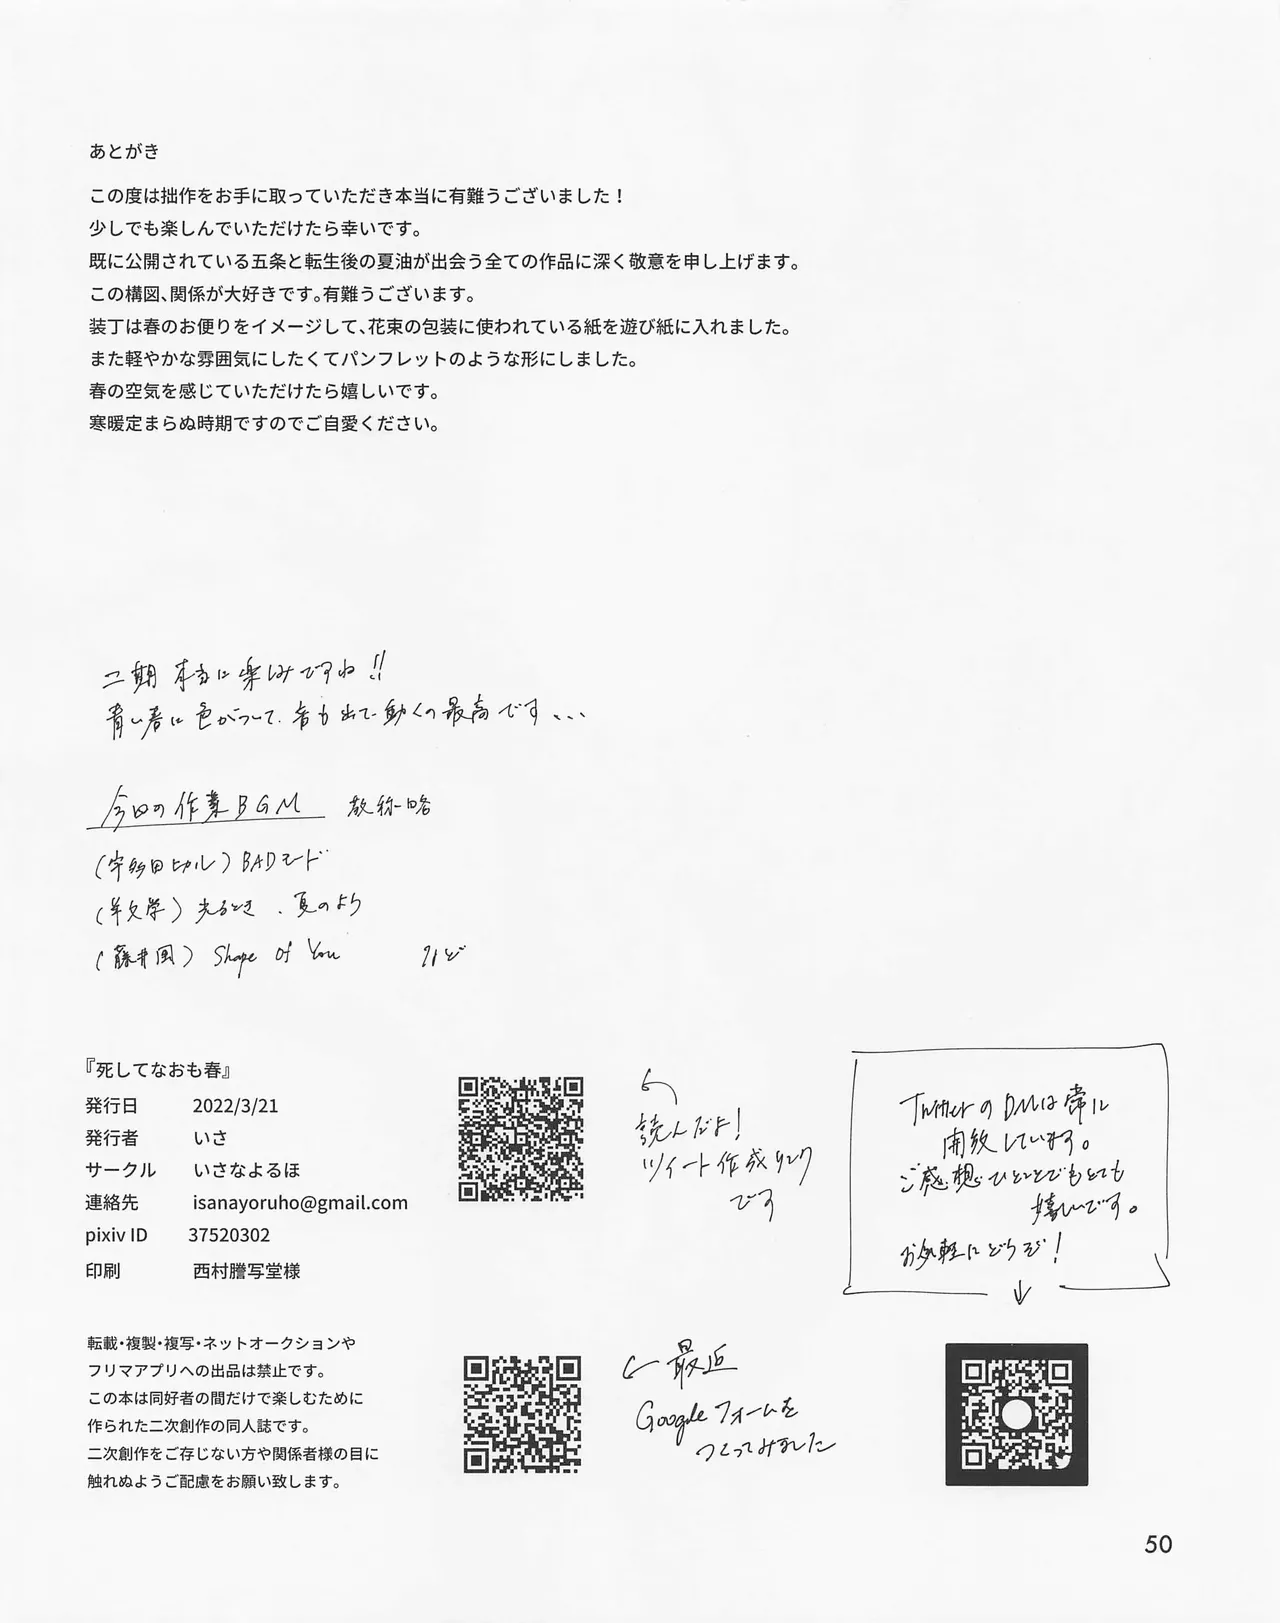 あとがき
この度は拙作をお手に取っていただき本当に有難うございました！
少しでも楽しんでいただけたら幸いです。
既に公開されている五条と転生後の夏油が出会う全ての作品に深く敬意を申し上げます。
この構図、関係が大好きです。有難うございます。
装丁は春のお便りをイメージして、花束の包装に使われている紙を遊び紙に入れました。
また軽やかな雰囲気にしたくてパンフレットのような形にしました。
春の空気を感じていただけたら嬉しいです。
寒暖定まらぬ時期ですのでご自愛ください。
二期 本当に楽しみですね!!
青い春に色がついて、音も出て動くの最高です、、、
今回の作業BGM 敬称略
(宇多田ヒカル) BADモード
(羊文学) 光るとき、夏のよう
(藤井風) Shape of You など
『死してなおも春』
発行日 2022/3/21
発行者 いさ
サークル いさなよるほ
連絡先 isanayoruho@gmail.com
pixiv ID 37520302
印刷 西村謄写堂様
読んだよ!
ツイート作成リンク
です
TwitterのDMは常に
開放しています。
ご感想ひとことでもとても
嬉しいです。
お気軽にどうぞ!
転載・複製・複写・ネットオークションや
フリマアプリへの出品は禁止です。
この本は同好者の間だけで楽しむために
作られた二次創作の同人誌です。
二次創作をご存じない方や関係者様の目に
触れぬようご配慮をお願い致します。
最近
Googleフォームを
つくってみました
50